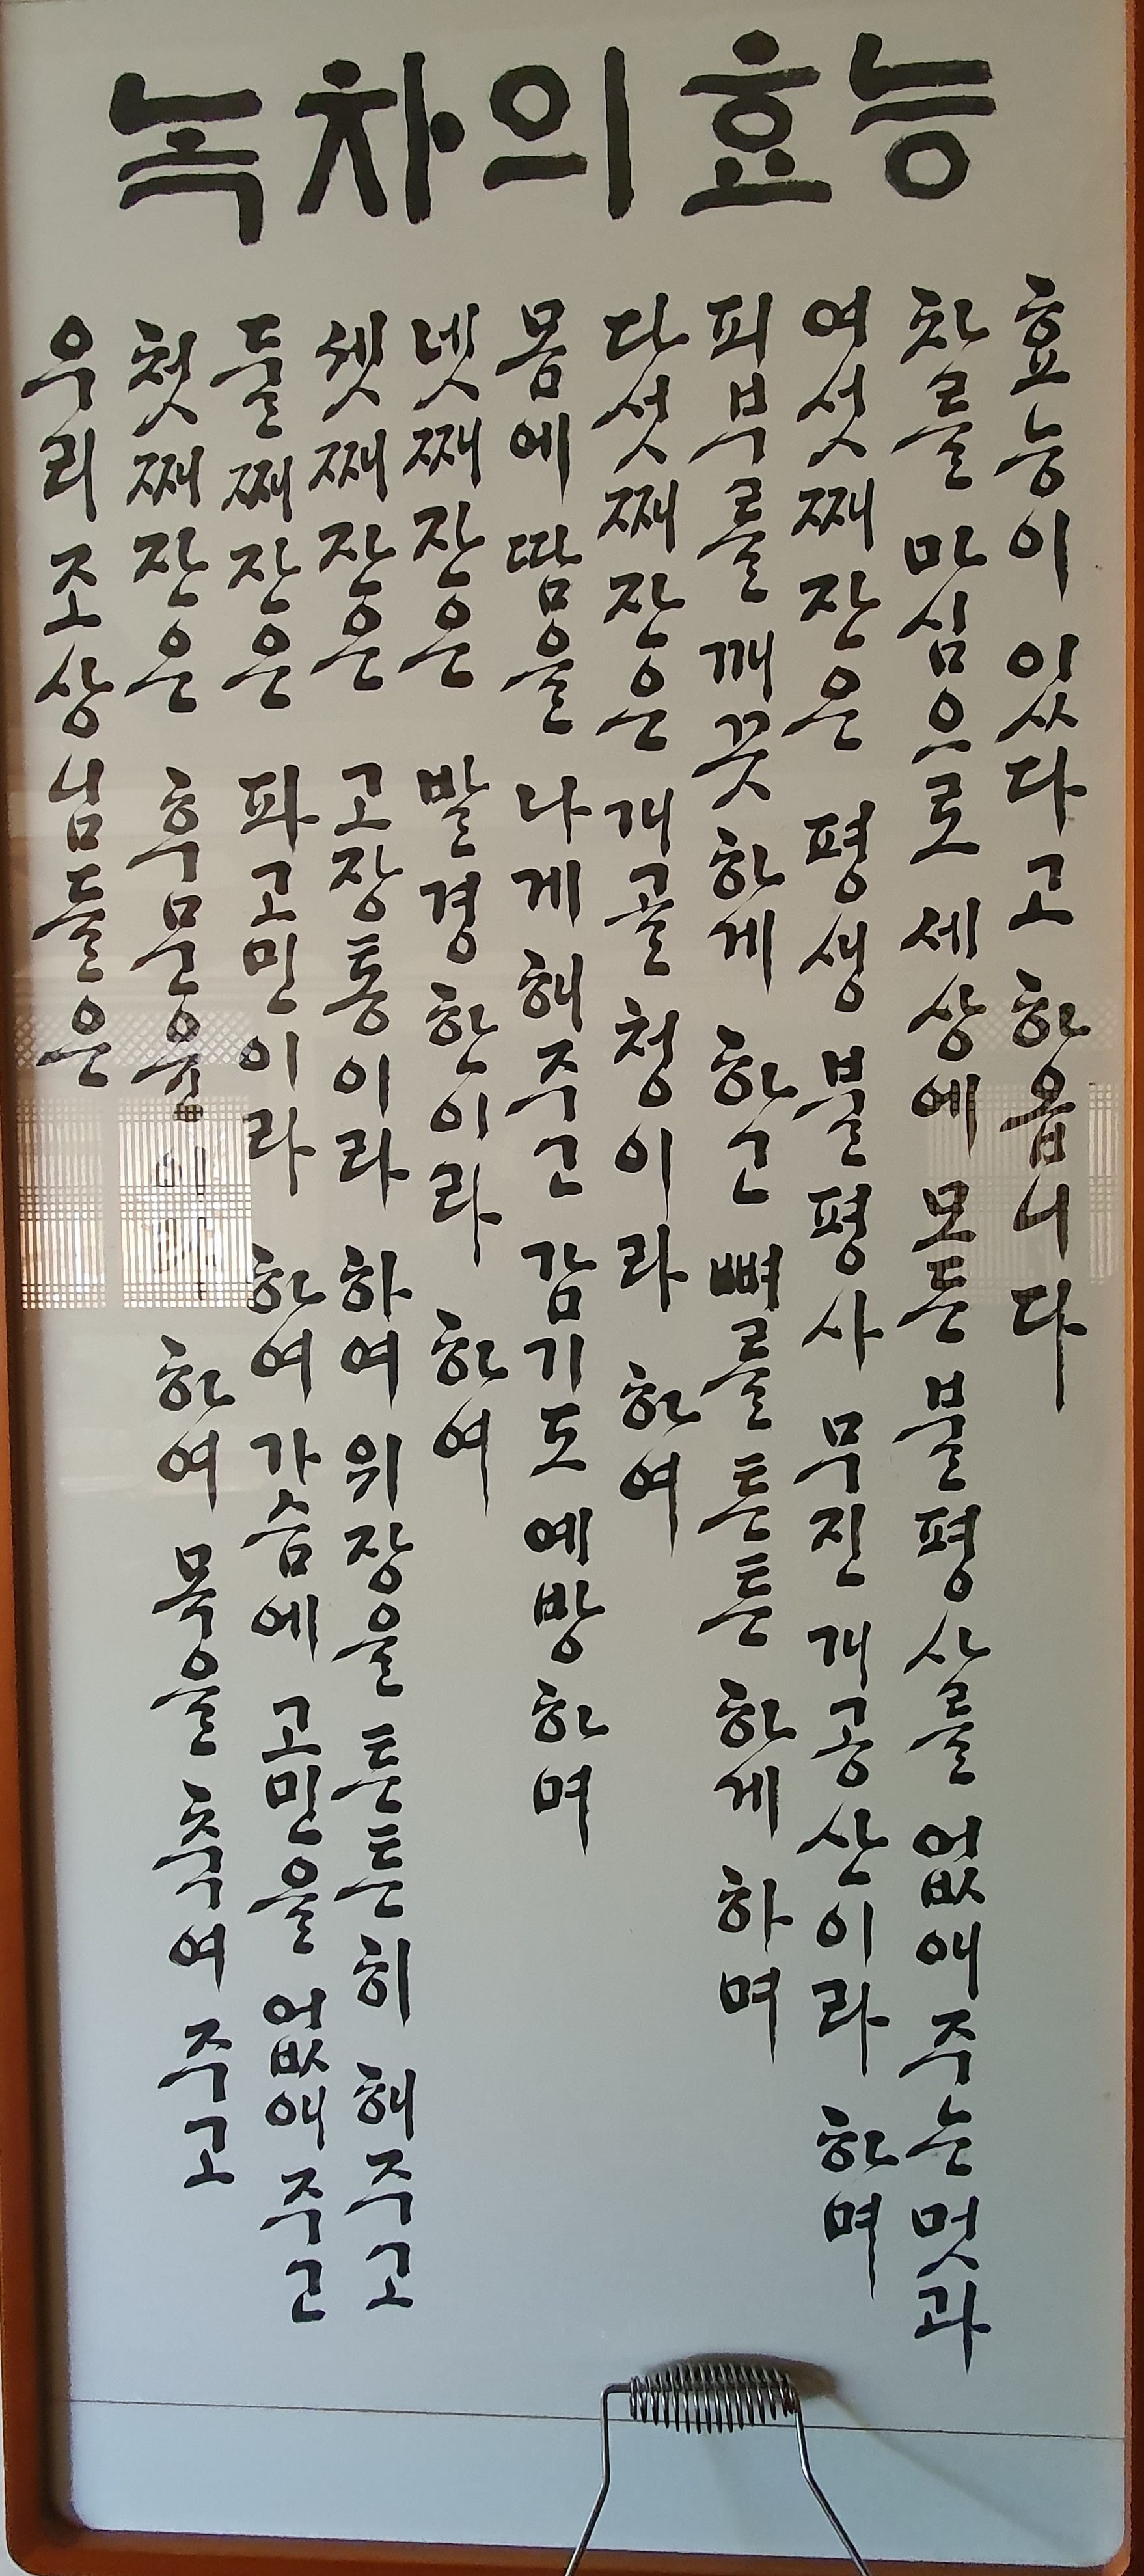 녹차의 효능
우리 조상님들은
첫째잔은 후문윤 이라 하여 목을 축여 주고
둘째잔은 파고민이라 하여 가슴에 고민을 없애 주고
셋째잔은 고장통이라 하여 위장을 튼튼히 해주고
넷째잔은 발경한이라 하여
몸에 땀을 나게 해주고 감기도 예방하며
다섯째잔은 개골청이라 하여
피부를 깨끗하게 하고 뼈를 튼튼하게 하며
여섯째잔은 평생불평사 무진개공산이라 하며
차를 마심으로 세상에 모든 불평사를 없애주는 멋과
효능이 있다고 하옵니다